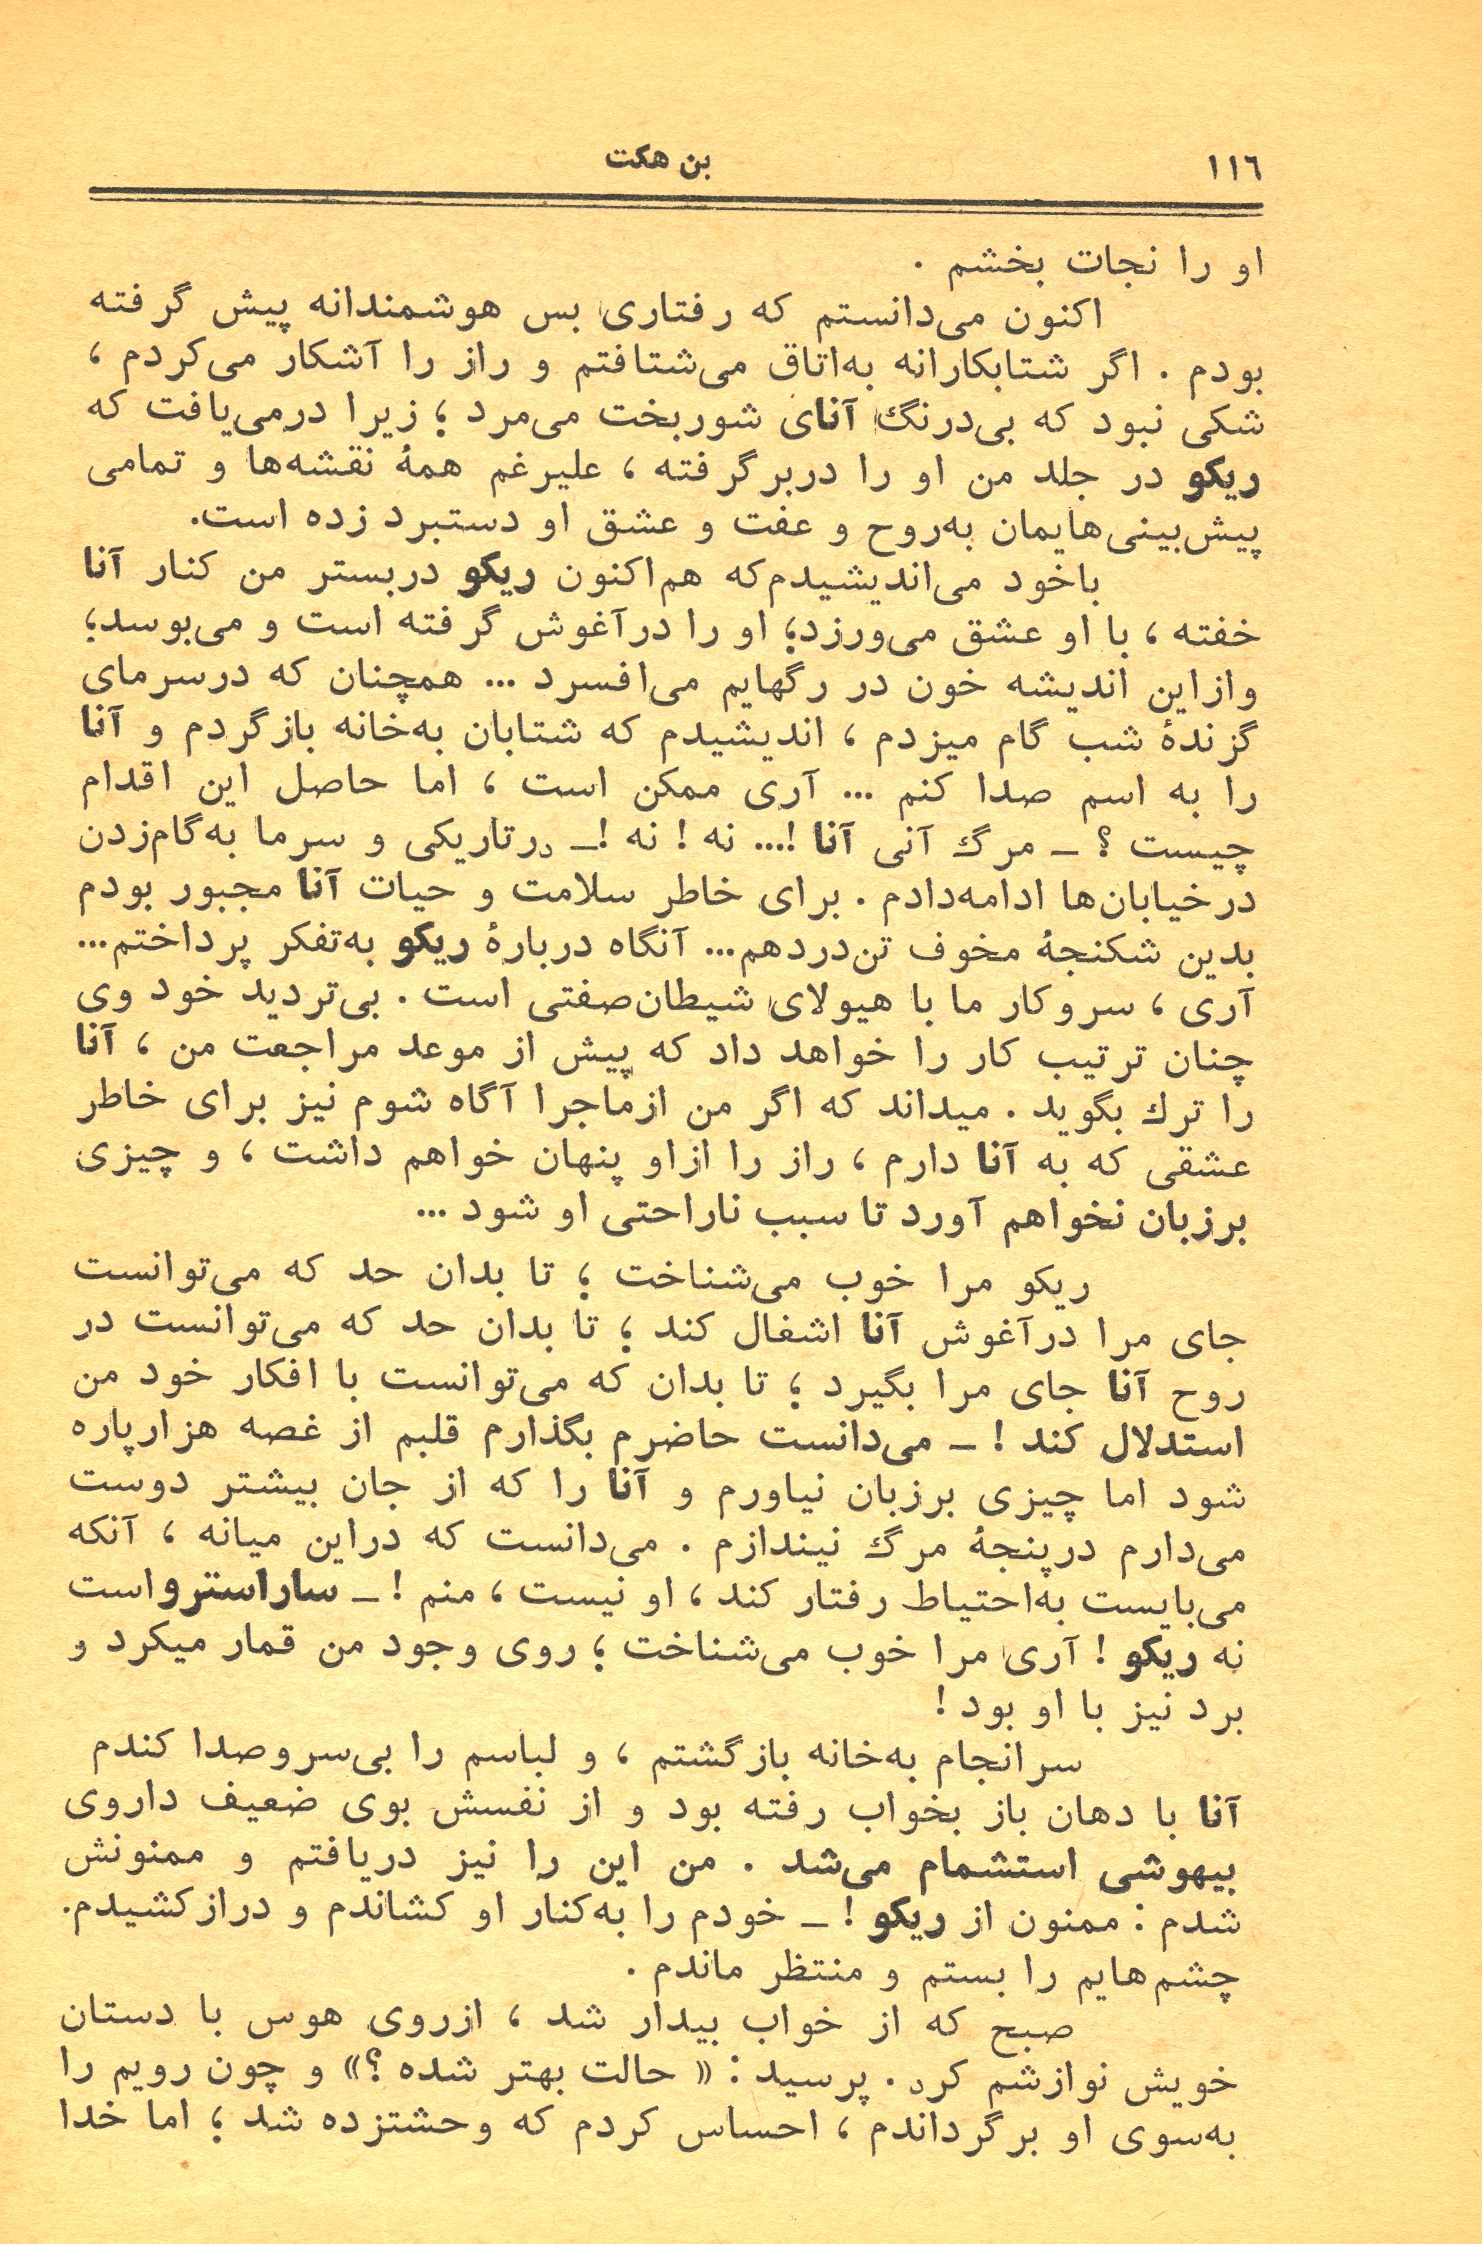 ١١٦
بن هکت
او را نجات بخشم .
اکنون می‌دانستم که رفتاری بس هوشمندانه پیش گرفته
بودم . اگر شتابکارانه به‌اتاق می‌شتافتم و راز را آشکار می‌کردم ،
شکی نبود که بی‌درنگ آنای شوربخت می‌مرد ؛ زیرا درمی‌یافت که
ریکو در جلد من او را دربرگرفته ، علیرغم همهٔ نقشه‌ها و تمامی
پیش‌بینی‌هایمان به‌روح و عفت و عشق او دستبرد زده است.
باخود می‌اندیشیدم‌که هم‌اکنون ریکو دربستر من کنار آنا
خفته ، با او عشق می‌ورزد؛ او را درآغوش گرفته است و می‌بوسد؛
وازاین اندیشه خون در رگهایم می‌افسرد ... همچنان که درسرمای
گزندهٔ شب گام میزدم ، اندیشیدم که شتابان به‌خانه بازگردم و آنا
را به اسم صدا کنم ... آری ممکن است ، اما حاصل این اقدام
چیست ؟ ـ مرگ آنی آنا !... نه ! نه !ـ درتاریکی و سرما به‌گام‌زدن
درخیابان‌ها ادامه‌دادم . برای خاطر سلامت و حیات آنا مجبور بودم
بدین شکنجهٔ مخوف تن‌دردهم... آنگاه دربارهٔ ریکو به‌تفکر پرداختم...
آری ، سروکار ما با هیولای شیطان‌صفتی است . بی‌تردید خود وی
چنان ترتیب کار را خواهد داد که پیش از موعد مراجعت من ، آنا
را ترك بگوید . میداند که اگر من ازماجرا آگاه شوم نیز برای خاطر
عشقی که به آنا دارم ، راز را ازاو پنهان خواهم داشت ، و چیزی
برزبان نخواهم آورد تا سبب ناراحتی او شود ...
ریکو مرا خوب می‌شناخت ؛ تا بدان حد که می‌توانست
جای مرا درآغوش آنا اشغال کند ؛ تا بدان حد که می‌توانست در
روح آنا جای مرا بگیرد ؛ تا بدان که می‌توانست با افکار خود من
استدلال کند ! ـ می‌دانست حاضرم بگذارم قلبم از غصه هزارپاره
شود اما چیزی برزبان نیاورم و آنا را که از جان بیشتر دوست
می‌دارم درپنجهٔ مرگ نیندازم . می‌دانست که دراین میانه ، آنکه
می‌بایست به‌احتیاط رفتار کند ، او نیست ، منم ! ـ ساراسترو است
نه ریکو ! آری مرا خوب می‌شناخت ؛ روی وجود من قمار میکرد و
برد نیز با او بود !
سرانجام به‌خانه بازگشتم ، و لباسم را بی‌سروصدا کندم
آنا با دهان باز بخواب رفته بود و از نفسش بوی ضعیف داروی
بیهوشی استشمام می‌شد . من این را نیز دریافتم و ممنونش
شدم : ممنون از ریکو ! ـ خودم را به‌کنار او کشاندم و درازکشیدم.
چشم‌هایم را بستم و منتظر ماندم .
صبح که از خواب بیدار شد ، ازروی هوس با دستان
خویش نوازشم کرد . پرسید : « حالت بهتر شده ؟» و چون رویم را
به‌سوی او برگرداندم ، احساس کردم که وحشتزده شد ؛ اما خدا